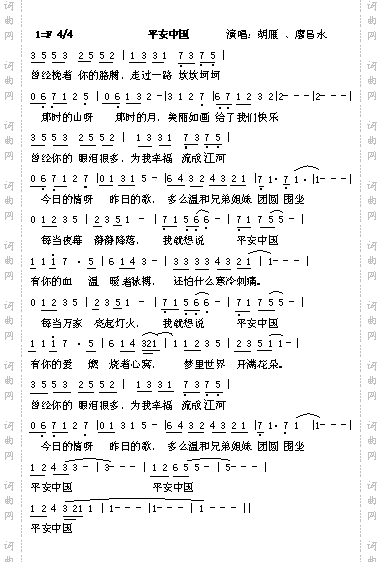 1=F 4/4 平安中国 演唱：胡雁、廖昌永
3 5 5 3 2 5 5 2 | 1 3 3 1 7 3 7 5 |
曾经挽着 你的胳膊，走过一路 坎坎坷坷
0 6 7 1 2 5 | 0 6 1 3 2 - | 3 1 2 7 | 6 7 1 2 3 2 | 2 - - - |
那时的山呀 那时的月，美丽如画 给了我们快乐
3 5 5 3 2 5 5 2 | 1 3 3 1 7 3 7 5 |
曾经你的 眼泪很多，为我幸福 流成江河
0 6 7 1 2 7 | 0 1 3 1 5 - | 6 4 3 2 4 3 2 1 | 7 1 · 7 1 · | 1 - - - |
今日的情呀 昨日的歌，多么温和兄弟姐妹 团圆 围坐
0 1 2 3 5 | 2 3 5 1 - | 7 1 7 5 6 6 - | 7 1 7 5 5 - |
每当夜幕 静静降落， 我就想说 平安中国
1 1 i 7 · 5 | 6 1 4 3 - | 3 3 3 3 4 3 2 1 | 1 - - - |
有你的血 温 暖着脉搏， 还怕什么寒冷刺痛。
0 1 2 3 5 | 2 3 5 1 - | 7 1 7 5 6 6 - | 7 1 7 5 5 - |
每当万家 亮起灯火， 我就想说 平安中国
1 1 i 7 · 5 | 6 1 4 321 | 1 1 2 3 5 | 2 3 5 1 1 - |
有你的爱 燃 烧着心窝， 梦里世界 开满花朵。
3 5 5 3 2 5 5 2 | 1 3 3 1 7 3 7 5 |
曾经你的 眼泪很多，为我幸福 流成江河
0 6 7 1 2 7 | 0 1 3 1 5 - | 6 4 3 2 4 3 2 1 | 7 1 · 7 1 · | 1 - - - |
今日的情呀 昨日的歌，多么温和兄弟姐妹 团圆 围坐
1 2 4 3 3 - | 3 - - - | 1 2 6 5 5 - | 5 - - - |
平安中国 平安中国
1 2 4 3 21 1 | 1 - - - | 1 - - - | 1 - - - ||
平安中国
词曲网
词曲网
词曲网
词曲网
词曲网
词曲网
词曲网
词曲网